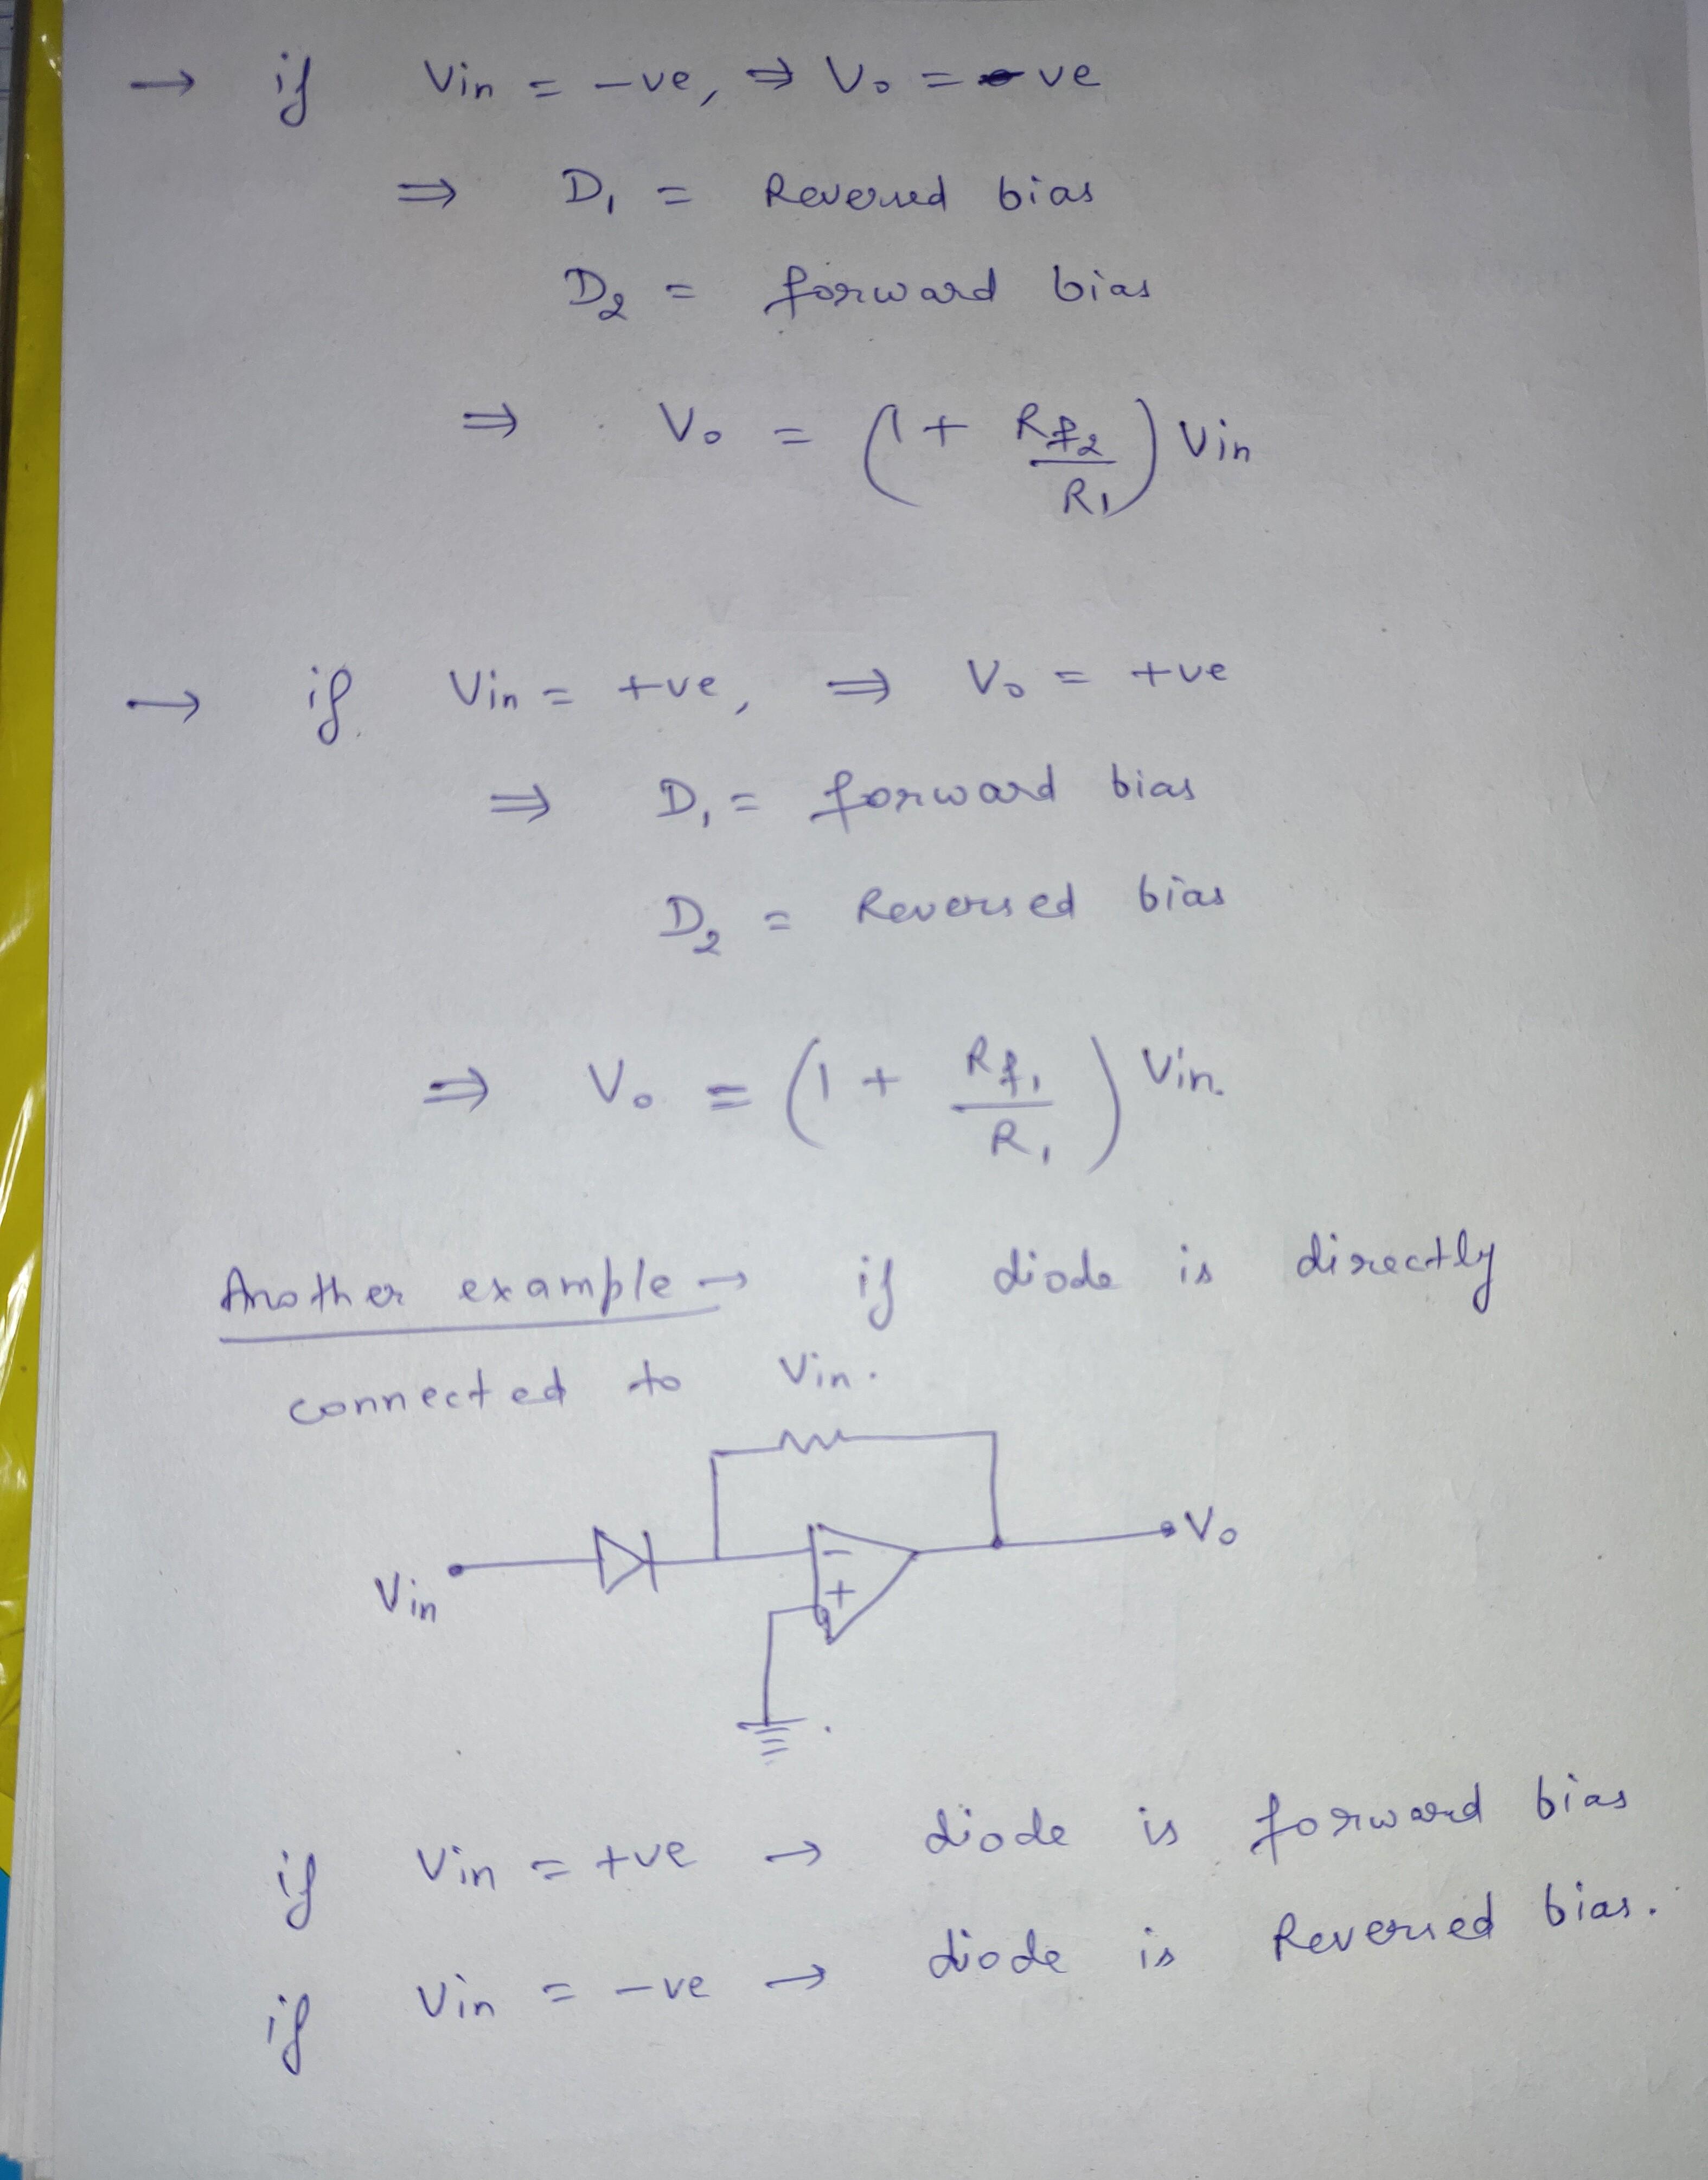 → if Vin = -ve, ⇒ Vo = -ve
⇒ D₁ = Reversed bias
D₂ = forward bias
⇒ Vo = (1 + Rf₂/R₁) Vin
→ if Vin = +ve, ⇒ Vo = +ve
⇒ D₁ = forward bias
D₂ = Reversed bias
⇒ Vo = (1 + Rf₁/R₁) Vin.
Another example → if diode is directly
connected to Vin.
Vin
-
+
Vo
if Vin = +ve → diode is forward bias
if Vin = -ve → diode is Reversed bias.